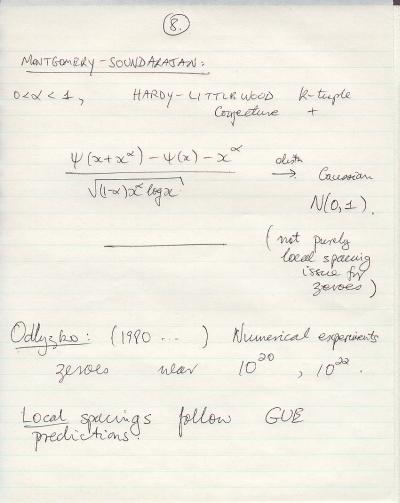 8.
MONTGOMERY-SOUNDARAJAN:
0<α<1, HARDY-LITTLEWOOD k-tuple
Conjecture +
ψ(x+x^α) - ψ(x) - x^α
√((1-α)x^α log x)
distn → Gaussian
N(0,1).
(not purely
local spacing
issue for
zeroes)
Odlyzko: (1980 ...) Numerical experiments
zeroes near 10^20, 10^22.
Local spacings follow GUE
predictions.